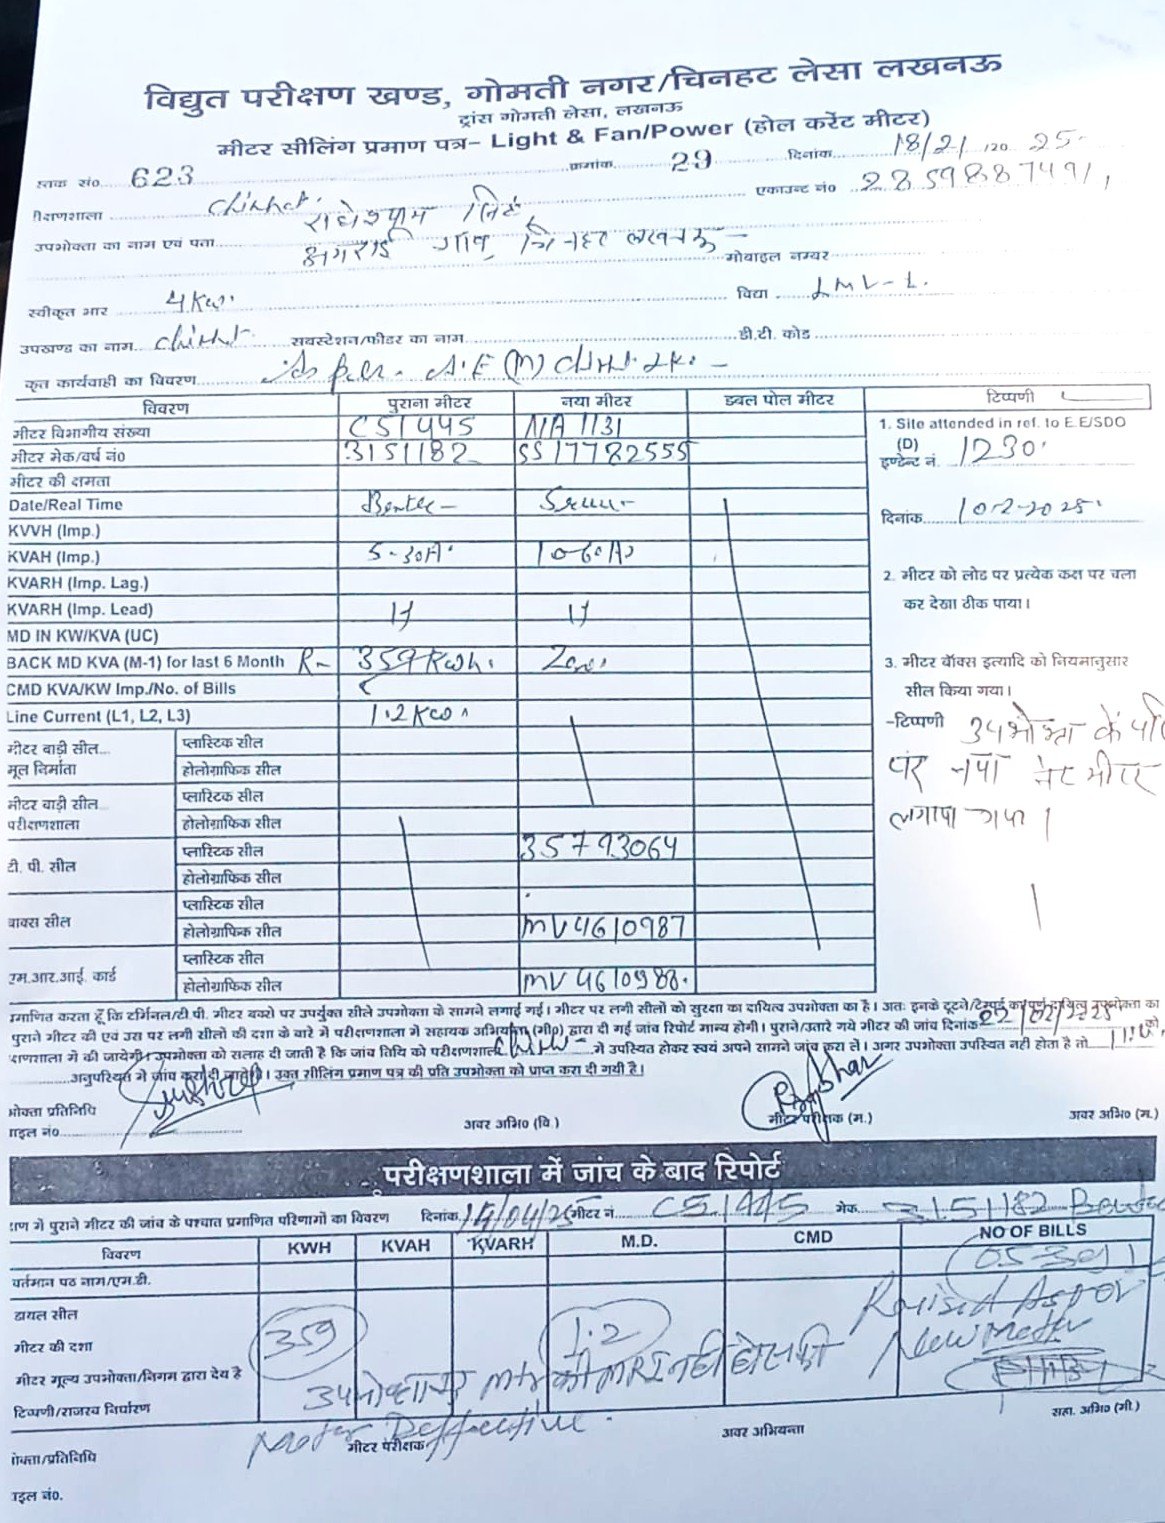 विद्युत परीक्षण खण्ड, गोमती नगर/चिनहट लेसा लखनऊ
ट्रांस गोमती लेसा, लखनऊ
मीटर सीलिंग प्रमाण पत्र– Light & Fan/Power (होल करेंट मीटर)
स्तक सं० 623 क्रमांक 29 दिनांक 18/2/2025
रीक्षणशाला एकाउन्ट नं० 2859887491
उपभोक्ता का नाम एवं पता राधेश्याम
चिनहट लखनऊ मोबाइल नम्बर
स्वीकृत भार 4 Kw. विद्या LMV-1.
उपखण्ड का नाम सबस्टेशन/फीडर का नाम डी.टी. कोड
कृत कार्यवाही का विवरण As per A.E (M)
विवरण पुराना मीटर नया मीटर डबल पोल मीटर टिप्पणी
मीटर विभागीय संख्या CS1445 NA1131 1. Site attended in ref. to E.E/SDO
मीटर मेक/वर्ष नं० 3151182 SS17782555 (D)
इण्डेन्ट नं. 1230
मीटर की क्षमता
Date/Real Time दिनांक 10-2-2025
KVVH (Imp.)
KVAH (Imp.) 5-30A 10-60A
KVARH (Imp. Lag.) 2. मीटर को लोड पर प्रत्येक कक्ष पर चला
KVARH (Imp. Lead) कर देखा ठीक पाया।
MD IN KW/KVA (UC)
BACK MD KVA (M-1) for last 6 Month R- 359 Kwh. 3. मीटर बॉक्स इत्यादि को नियमानुसार
CMD KVA/KW Imp./No. of Bills सील किया गया।
Line Current (L1, L2, L3) 1.2 Kw -टिप्पणी उपभोक्ता के
मीटर बाडी सील... प्लास्टिक सील पर नया नेट मीटर
मूल निर्माता होलोग्राफिक सील लगाया गया।
मीटर बाडी सील प्लास्टिक सील
परीक्षणशाला होलोग्राफिक सील
टी. पी. सील प्लास्टिक सील 35793064
होलोग्राफिक सील
बाक्स सील प्लास्टिक सील
होलोग्राफिक सील MV4610987
एम.आर.आई. कार्ड प्लास्टिक सील
होलोग्राफिक सील MV4610988.
माणित करता हूँ कि टर्मिनल/टी.पी. मीटर बक्से पर उपर्युक्त सीले उपभोक्ता के सामने लगाई गई। मीटर पर लगी सीलों को सुरक्षा का दायित्व उपभोक्ता का है। अतः इनके टूटने/टेम्पर्ड का पूर्ण दायित्व उपभोक्ता का
पुराने मीटर की एवं उस पर लगी सीलों की दशा के बारे में परीक्षणशाला में सहायक अभियन्ता (मी०) द्वारा दी गई जांच रिपोर्ट मान्य होगी। पुराने/उतारे गये मीटर की जांच दिनांक को
क्षणशाला में की जायेगी। उपभोक्ता को सलाह दी जाती है कि जांच तिथि को परीक्षणशाला में उपस्थित होकर स्वयं अपने सामने जांच करा ले। अगर उपभोक्ता उपस्थित नहीं होता है तो
अनुपस्थित में जांच करा दी जायेगी। उक्त सीलिंग प्रमाण पत्र की प्रति उपभोक्ता को प्राप्त करा दी गयी है।
भोक्ता प्रतिनिधि
ाइल नं० अवर अभि० (वि.) मीटर परीक्षक (म.) अवर अभि० (म.)
परीक्षणशाला में जांच के बाद रिपोर्ट
ण में पुराने मीटर की जांच के पश्चात प्रमाणित परिणामों का विवरण दिनांक 14/04/25 मीटर नं. CS1445 मेक 3151182
विवरण KWH KVAH KVARH M.D. CMD NO OF BILLS
वर्तमान पठ नाम/एम.डी.
डायल सील
मीटर की दशा 359 1.2 New Meter
मीटर मूल्य उपभोक्ता/निगम द्वारा देय है
टिप्पणी/राजस्व निर्धारण
Meter Deffective. सहा. अभि० (मी.)
ोक्ता/प्रतिनिधि मीटर परीक्षक अवर अभियन्ता
ाइल नं०.